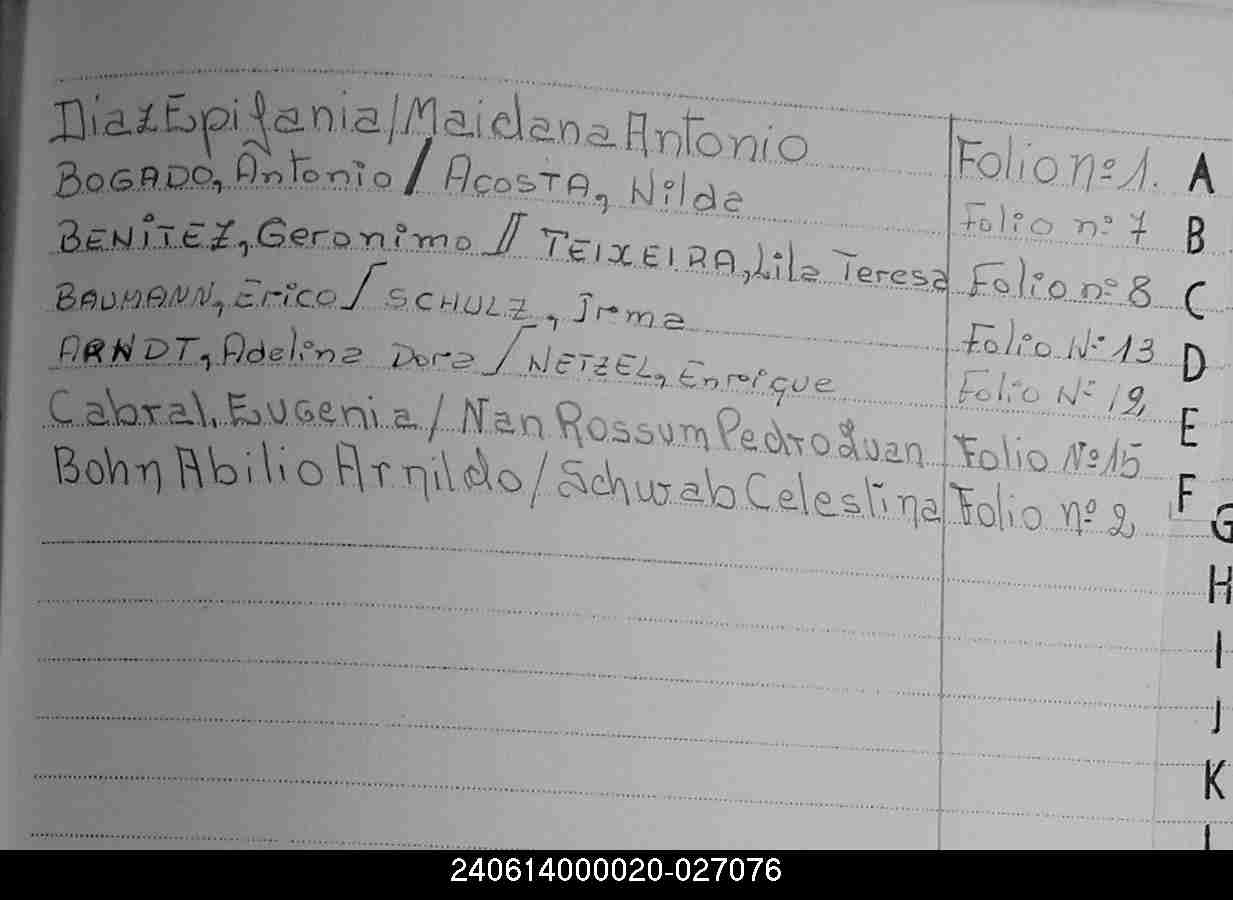 Diaz Epifania/Maidana Antonio Folio nº 1.
BOGADO, Antonio / ACOSTA, Nilda Folio nº 7
BENITEZ, Geronimo // TEIXEIRA, Lila Teresa Folio nº 8
BAUMANN, Erico / SCHULZ, Irma Folio Nº 13
ARNDT, Adelina Dora / NETZEL, Enrique Folio Nº 12
Cabral, Eugenia / Nan Rossum Pedro Juan Folio Nº 15
Bohn Abilio Arnildo / Schwab Celestina Folio nº 2
A
B
C
D
E
F
G
H
I
J
K
240614000020-027076